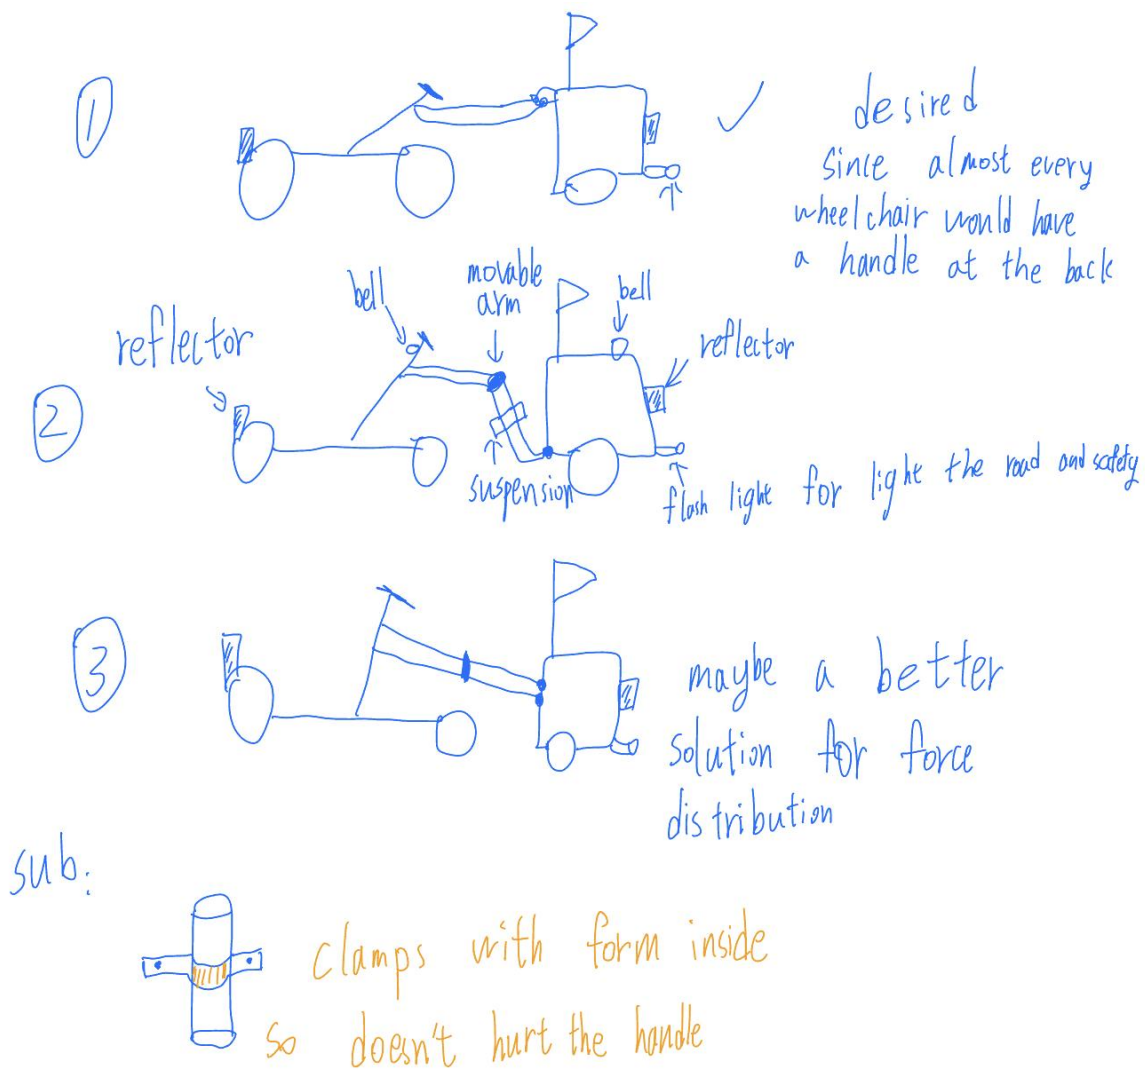 1
desired
since almost every
wheelchair would have
a handle at the back
2
reflector
bell
movable
arm
bell
reflector
suspension
flash light for light the road and safety
3
maybe a better
solution for force
distribution
sub:
clamps with form inside
so doesn't hurt the handle